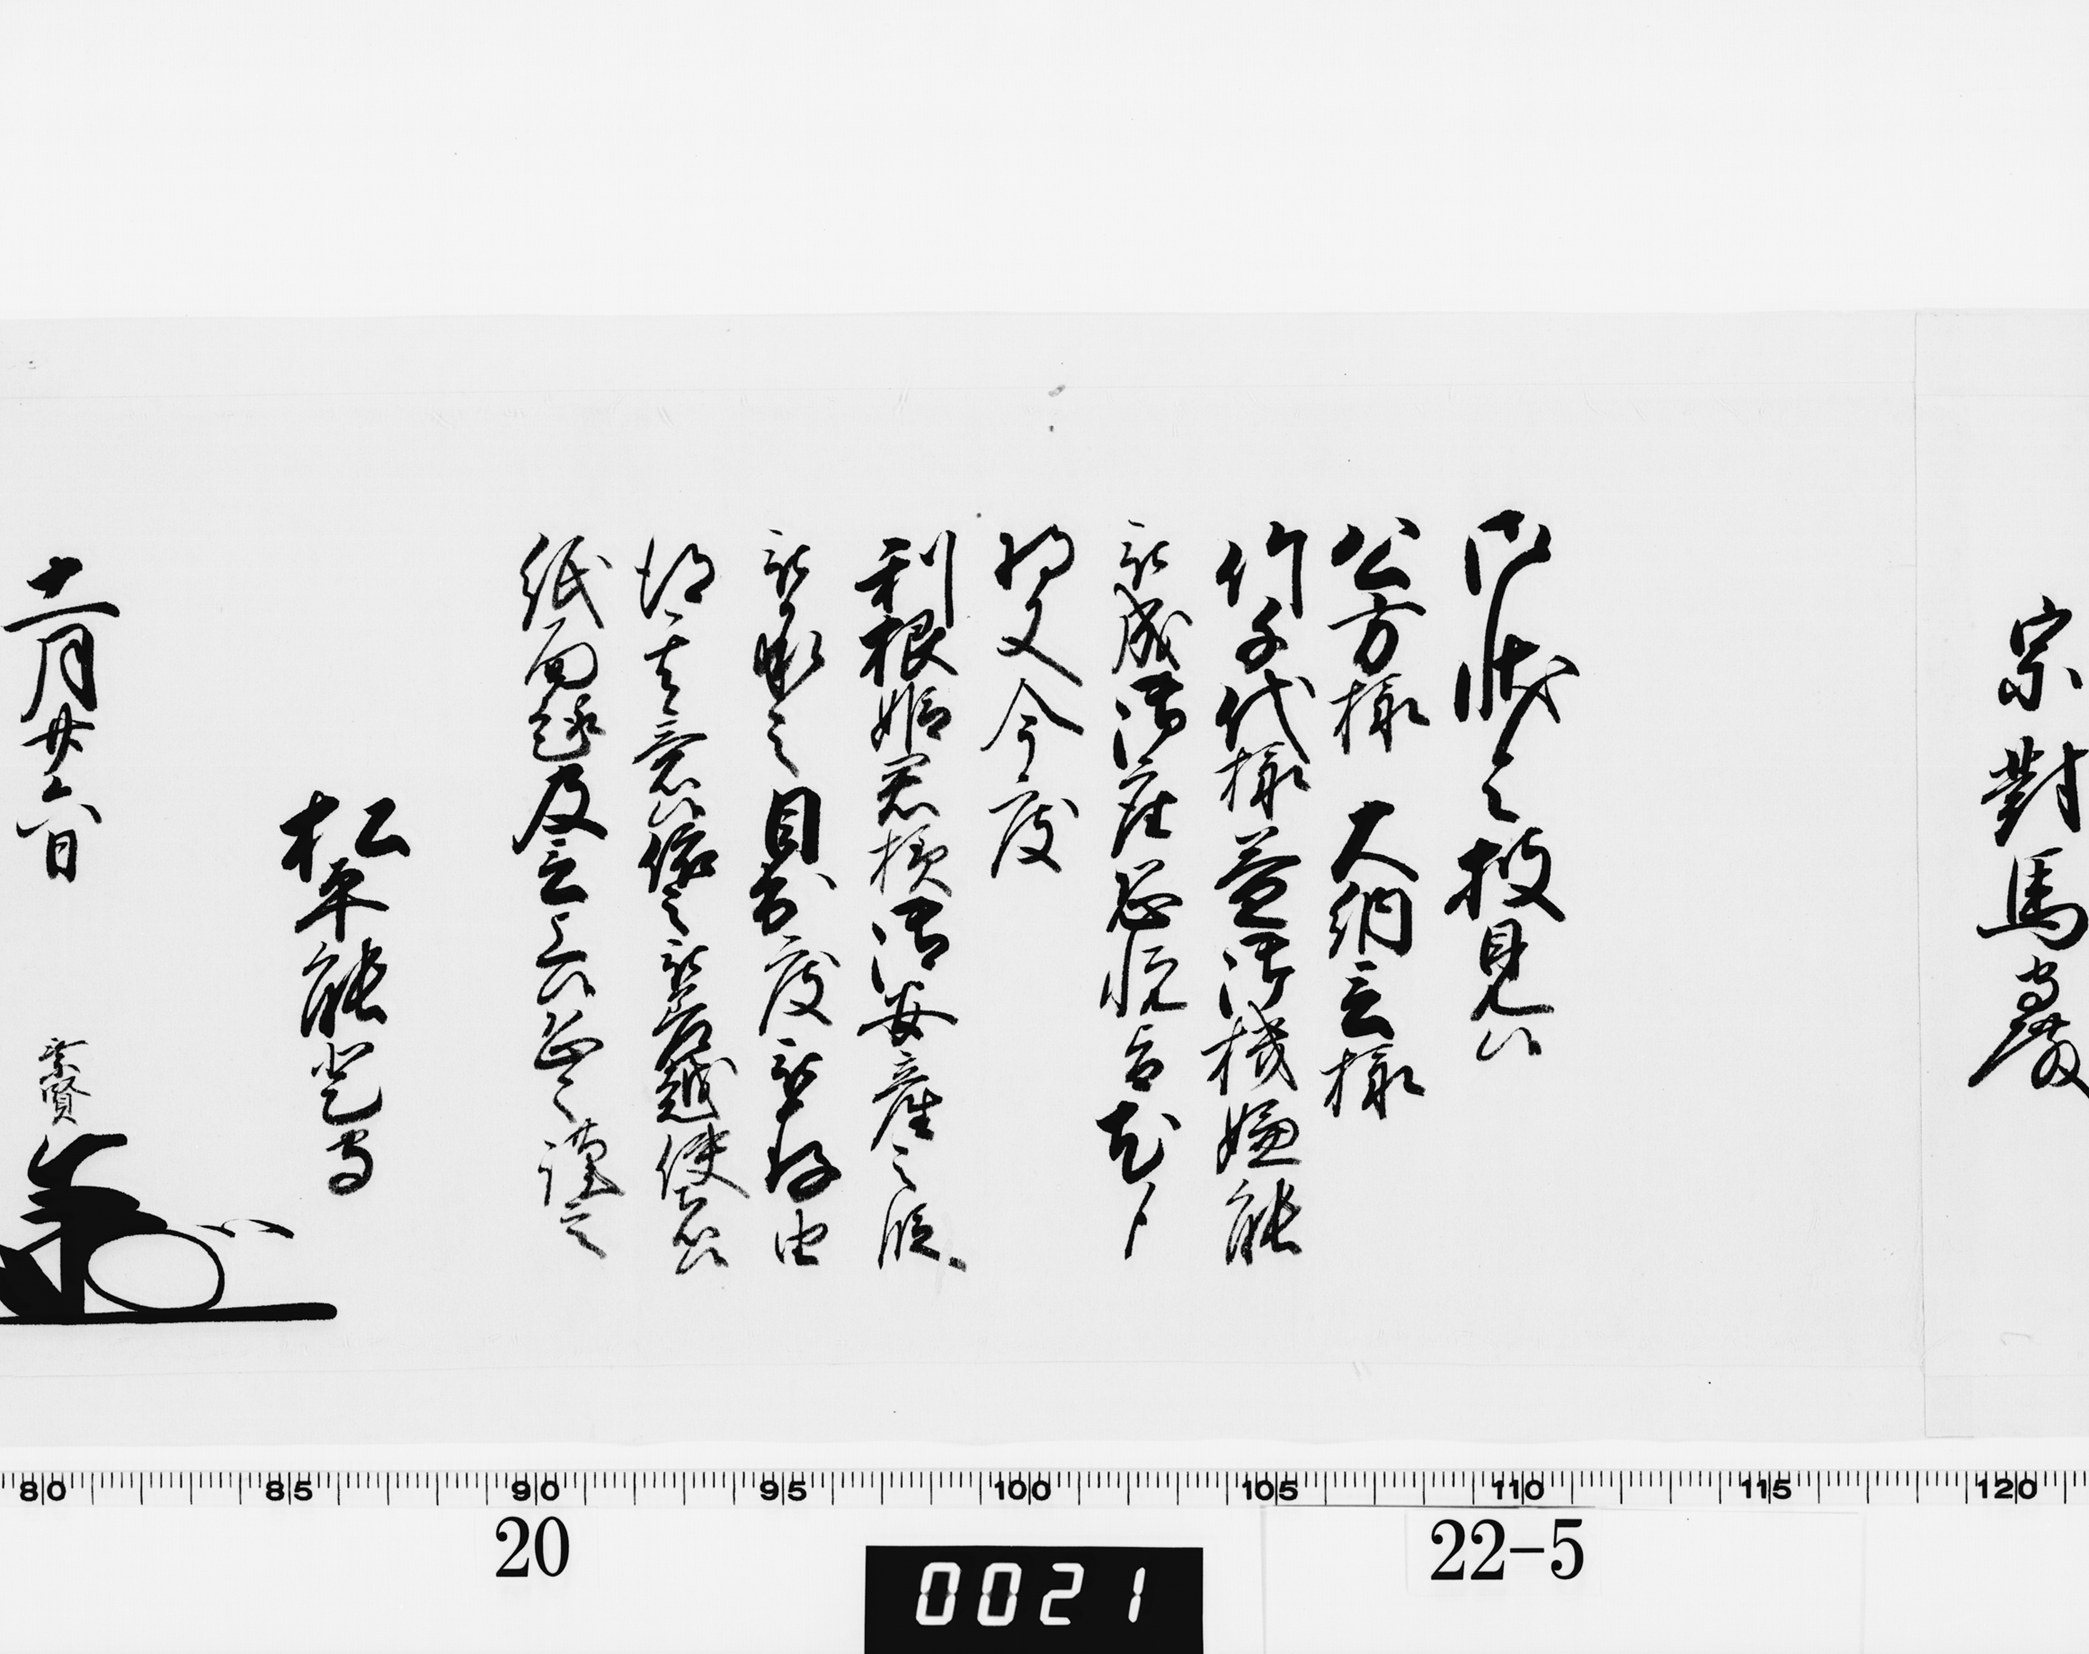 宗對馬守殿
御状令披見候
公方様 大納言様
竹千代様益御機嫌能
被成御座恐悦旨尤候
将又今度
利根姫君様御安産之段
被承之目出度被存由
得其意候依之被差越使者候
紙面趣及言上候恐々謹言
松平能登守
十一月廿六日
乗賢
80 85 90 95 100 105 110 115 120
20
22-5
0021